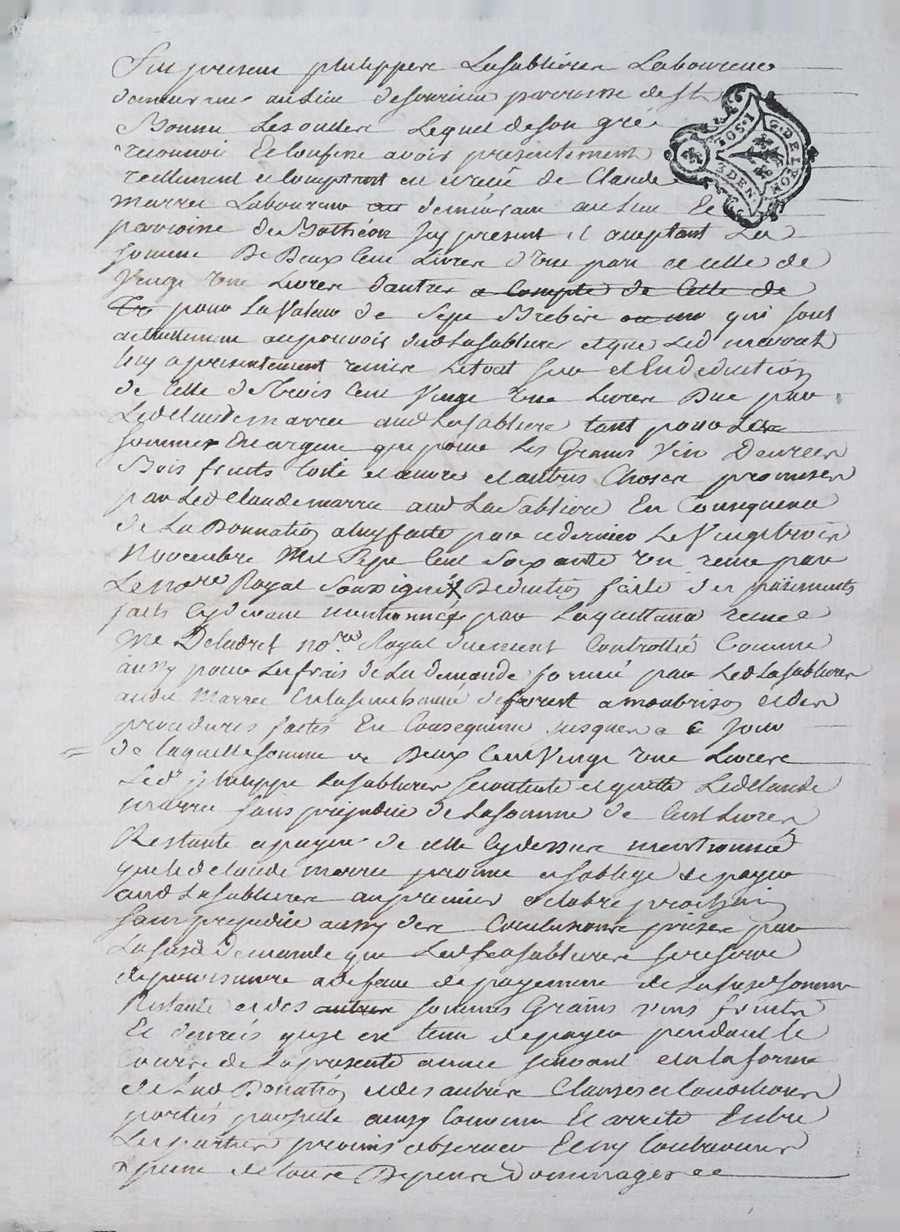 Fut present philippe Lasabliere Laboureur
demeurant au lieu de souvriere parroisse de St
Bonnet Lesoulere Lequel de son gré
reconnoi Et confesse avoir presentement
reellement et comptant eu et receu de Claude
marret Laboureur au demeurant au lieu Et
parroisse de Bothéon Icy present et aceptant La
somme De Deux Cent Livres d'une part et celle de
Vingt Une Livres d'autre a Compte de Cette de
pour La Valeur de Sept Brebis ou un qui sont
actuellement au pouvoir dud Lasabliere et que Led marret
luy a presentement remise Le tout sur et En deduction
de Celle de Trois Cent Vingt une Livres Due par
Led Claude marret aud Lasabliere tant pour Les
sommes En argent que pour Les Grains Vin Denrées
Bois fruits toile et œuvre et autres Choses promises
par Led Claude marret aud La Sabliere En Consequence
de La Donnation a luy faite par ce dernier Le Vingt trois
Novembre Mil Sept Cent Soixante un receue par
Le no.re Royal Soussigné Deduction faite des paiements
faits Cydevant mentionnés par La quittance receue
Me no.re Royal duement Controllée Comme
aussy pour Les frais de La demande formée par Led Lasabliere
aud Marret En la senechaussée de forest a montbrison et des
procedures faites En Consequence jusques a ce jour
de laquelle somme de Deux Cent Vingt une Livres
Led philippe Lasabliere se contente et quitte Led Claude
marret sans prejudice de La somme de Cent Livres
Restante a payer de celle Cydessus mentionnée
que led Claude marret promet et soblige de payer
aud Lasabliere au premier octobre prochain
sans prejudice aussy des Conclusions prises par
La susd Demande que Led Lasabliere se reserve
de poursuivre a defaut de payement de La susd somme
Restante et des autres sommes Grains vins fruits
Et denrées quil est tenu de payer pendant le
Cours de La presente année suivant et en la forme
de Lad Donation et des autres Clauses et Conditions
portées par icelle ainsy Convenu Et arreté Entre
Les parties promis observer Et ny Contrevenir
a peine de tous Depens Dommages ec
G. DE LYON
3 DEN.